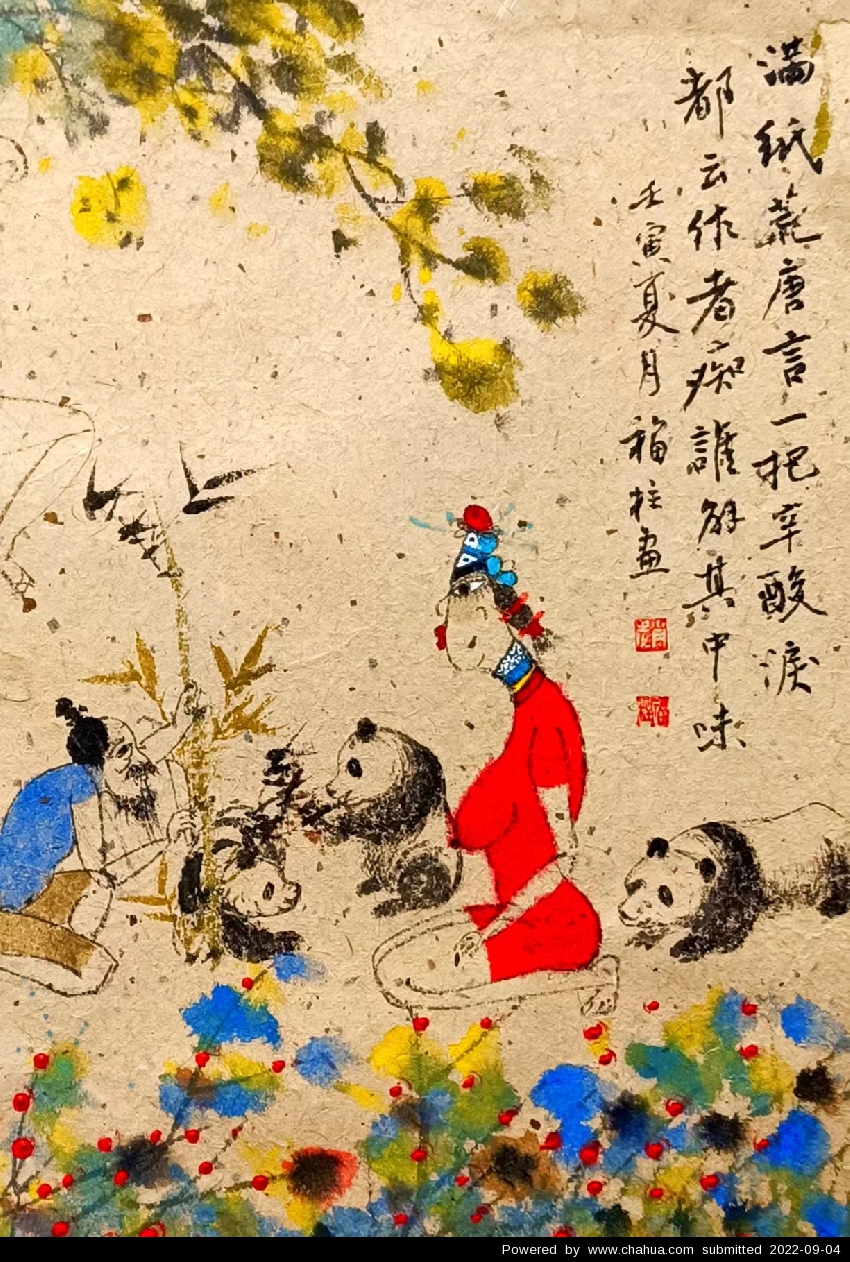 满纸荒唐言一把辛酸淚
都云作者痴誰解其中味
壬寅夏月福柱畫
Powered by www.chahua.com submitted 2022-09-04